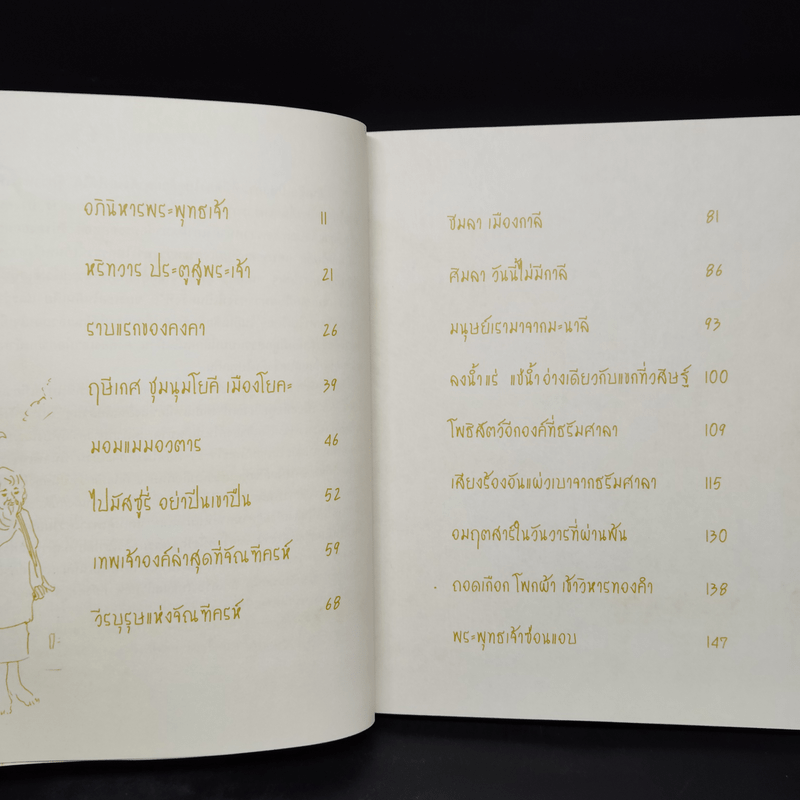 อภินิหารพระพุทธเจ้า 11
หริทวาร ประตูสู่พระเจ้า 21
ราบแรกของคงคา 26
ฤษีเกศ ชุมนุมโยคี เมืองโยคะ 39
มอมแมมอวตาร 46
ไปมัสซูรี่ อย่าปีนเขาปีน 52
เทพเจ้าองค์ล่าสุดที่จัณฑีครห์ 59
วีรบุรุษแห่งจัณฑีครห์ 68
ชิมลา เมืองกาลี 81
ศิมลา วันนี้ไม่มีกาลี 86
มนุษย์เรามาจากมะนาลี 93
ลงน้ำแร่ แช่น้ำอ่างเดียวกับแขกที่วสิษฐ์ 100
โพธิสัตว์อีกองค์ที่ธรัมศาลา 109
เสียงร้องอันแผ่วเบาจากธรัมศาลา 115
อมฤตสาร์ในวันวารที่ผ่านพ้น 130
ถอดเกือก โพกผ้า เข้าวิหารทองคำ 138
พระพุทธเจ้าซ่อนแอบ 147